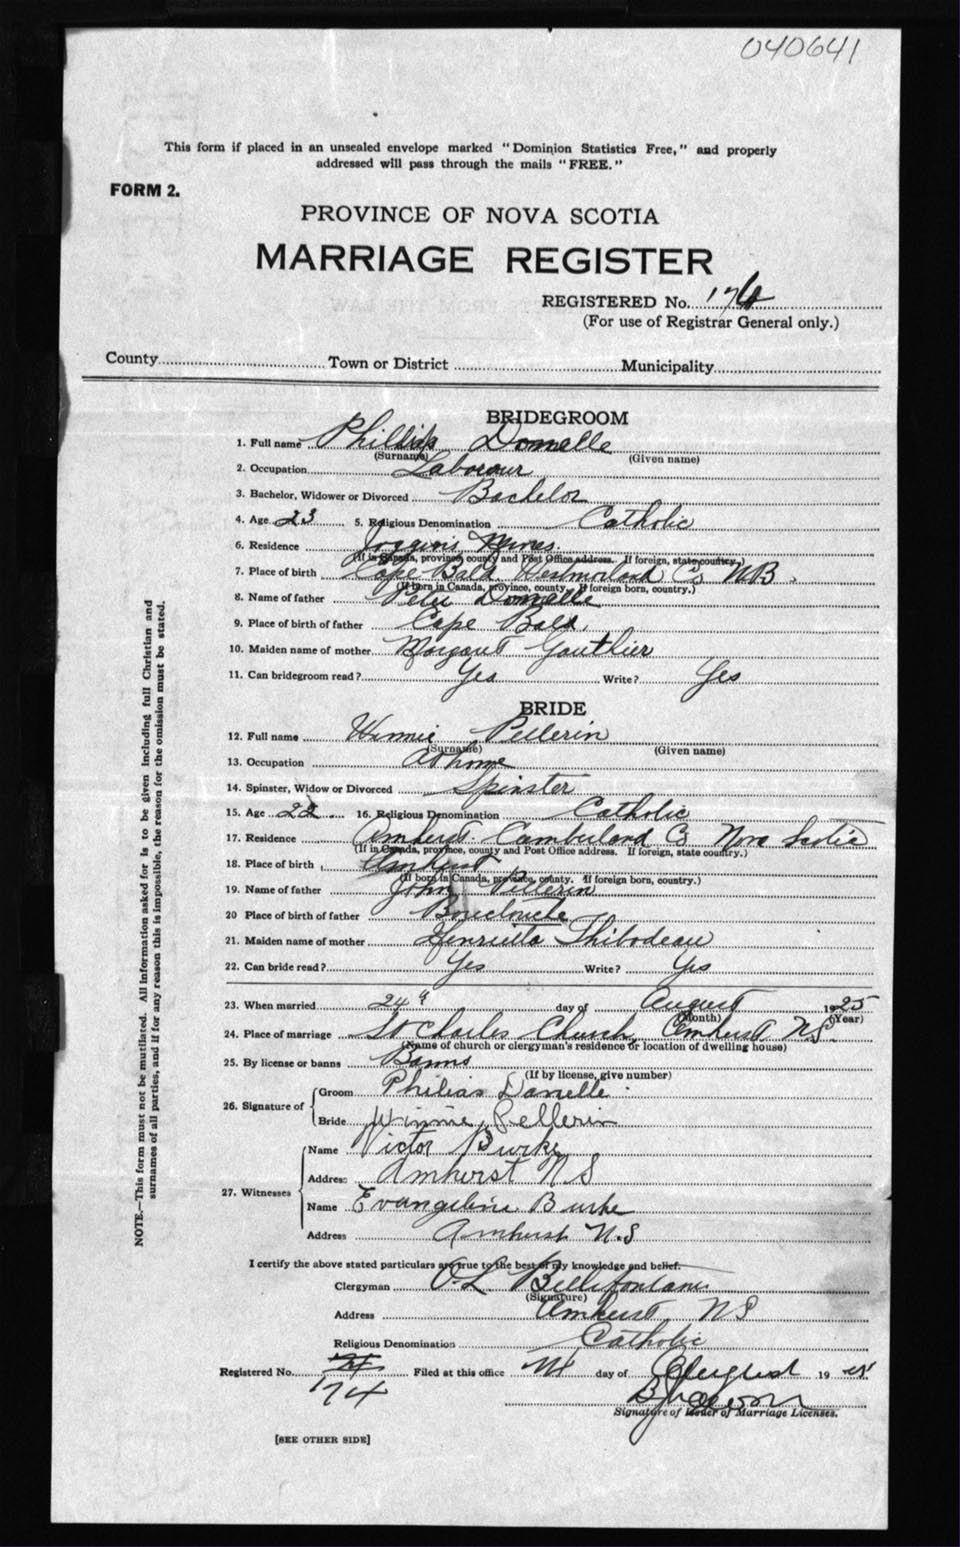 040641
This form if placed in an unsealed envelope marked "Dominion Statistics Free," and properly
addressed will pass through the mails "FREE."
FORM 2.
PROVINCE OF NOVA SCOTIA
MARRIAGE REGISTER
REGISTERED No.
(For use of Registrar General only.)
County Town or District Municipality
BRIDEGROOM
1. Full name Domelle
(Surname) (Given name)
2. Occupation Labourer
3. Bachelor, Widower or Divorced Bachelor
4. Age 23 5. Religious Denomination Catholic
6. Residence Joggins Mines
(If in Canada, province, county and Post Office address. If foreign, state country.)
7. Place of birth Cape Bald Co NB.
(If born in Canada, province, county. If foreign born, country.)
8. Name of father Peter Domelle
9. Place of birth of father Cape Bald.
10. Maiden name of mother Margaret Gauthier
11. Can bridegroom read? Yes Write? Yes
BRIDE
12. Full name Winnie Pellerin
(Surname) (Given name)
13. Occupation At home
14. Spinster, Widow or Divorced Spinster
15. Age 22 16. Religious Denomination Catholic
17. Residence Amherst. Cumberland Co Nova Scotia
(If in Canada, province, county and Post Office address. If foreign, state country.)
18. Place of birth Amherst
(If born in Canada, province, county. If foreign born, country.)
19. Name of father John Pellerin
20 Place of birth of father Bouctouche
21. Maiden name of mother Henrietta Thibodeau
22. Can bride read? Yes Write? Yes
23. When married 24th day of August 1925
(Month) (Year)
24. Place of marriage St Charles Church, Amherst N.S.
(Name of church or clergyman's residence or location of dwelling house)
25. By license or banns Banns
(If by license, give number)
26. Signature of Groom Philias Danelle
Bride Winnie Pellerin
27. Witnesses Name Victor Burke
Address Amherst N S
Name Evangeline Burke
Address Amherst N.S
I certify the above stated particulars are true to the best of my knowledge and belief.
Clergyman
(Signature)
Address Amherst NS
Religious Denomination Catholic
Registered No. 174 Filed at this office day of August 19
Signature of Issuer of Marriage Licenses.
[SEE OTHER SIDE]
NOTE.—This form must not be mutilated. All information asked for is to be given including full Christian and
surnames of all parties, and if for any reason this is impossible, the reason for the omission must be stated.